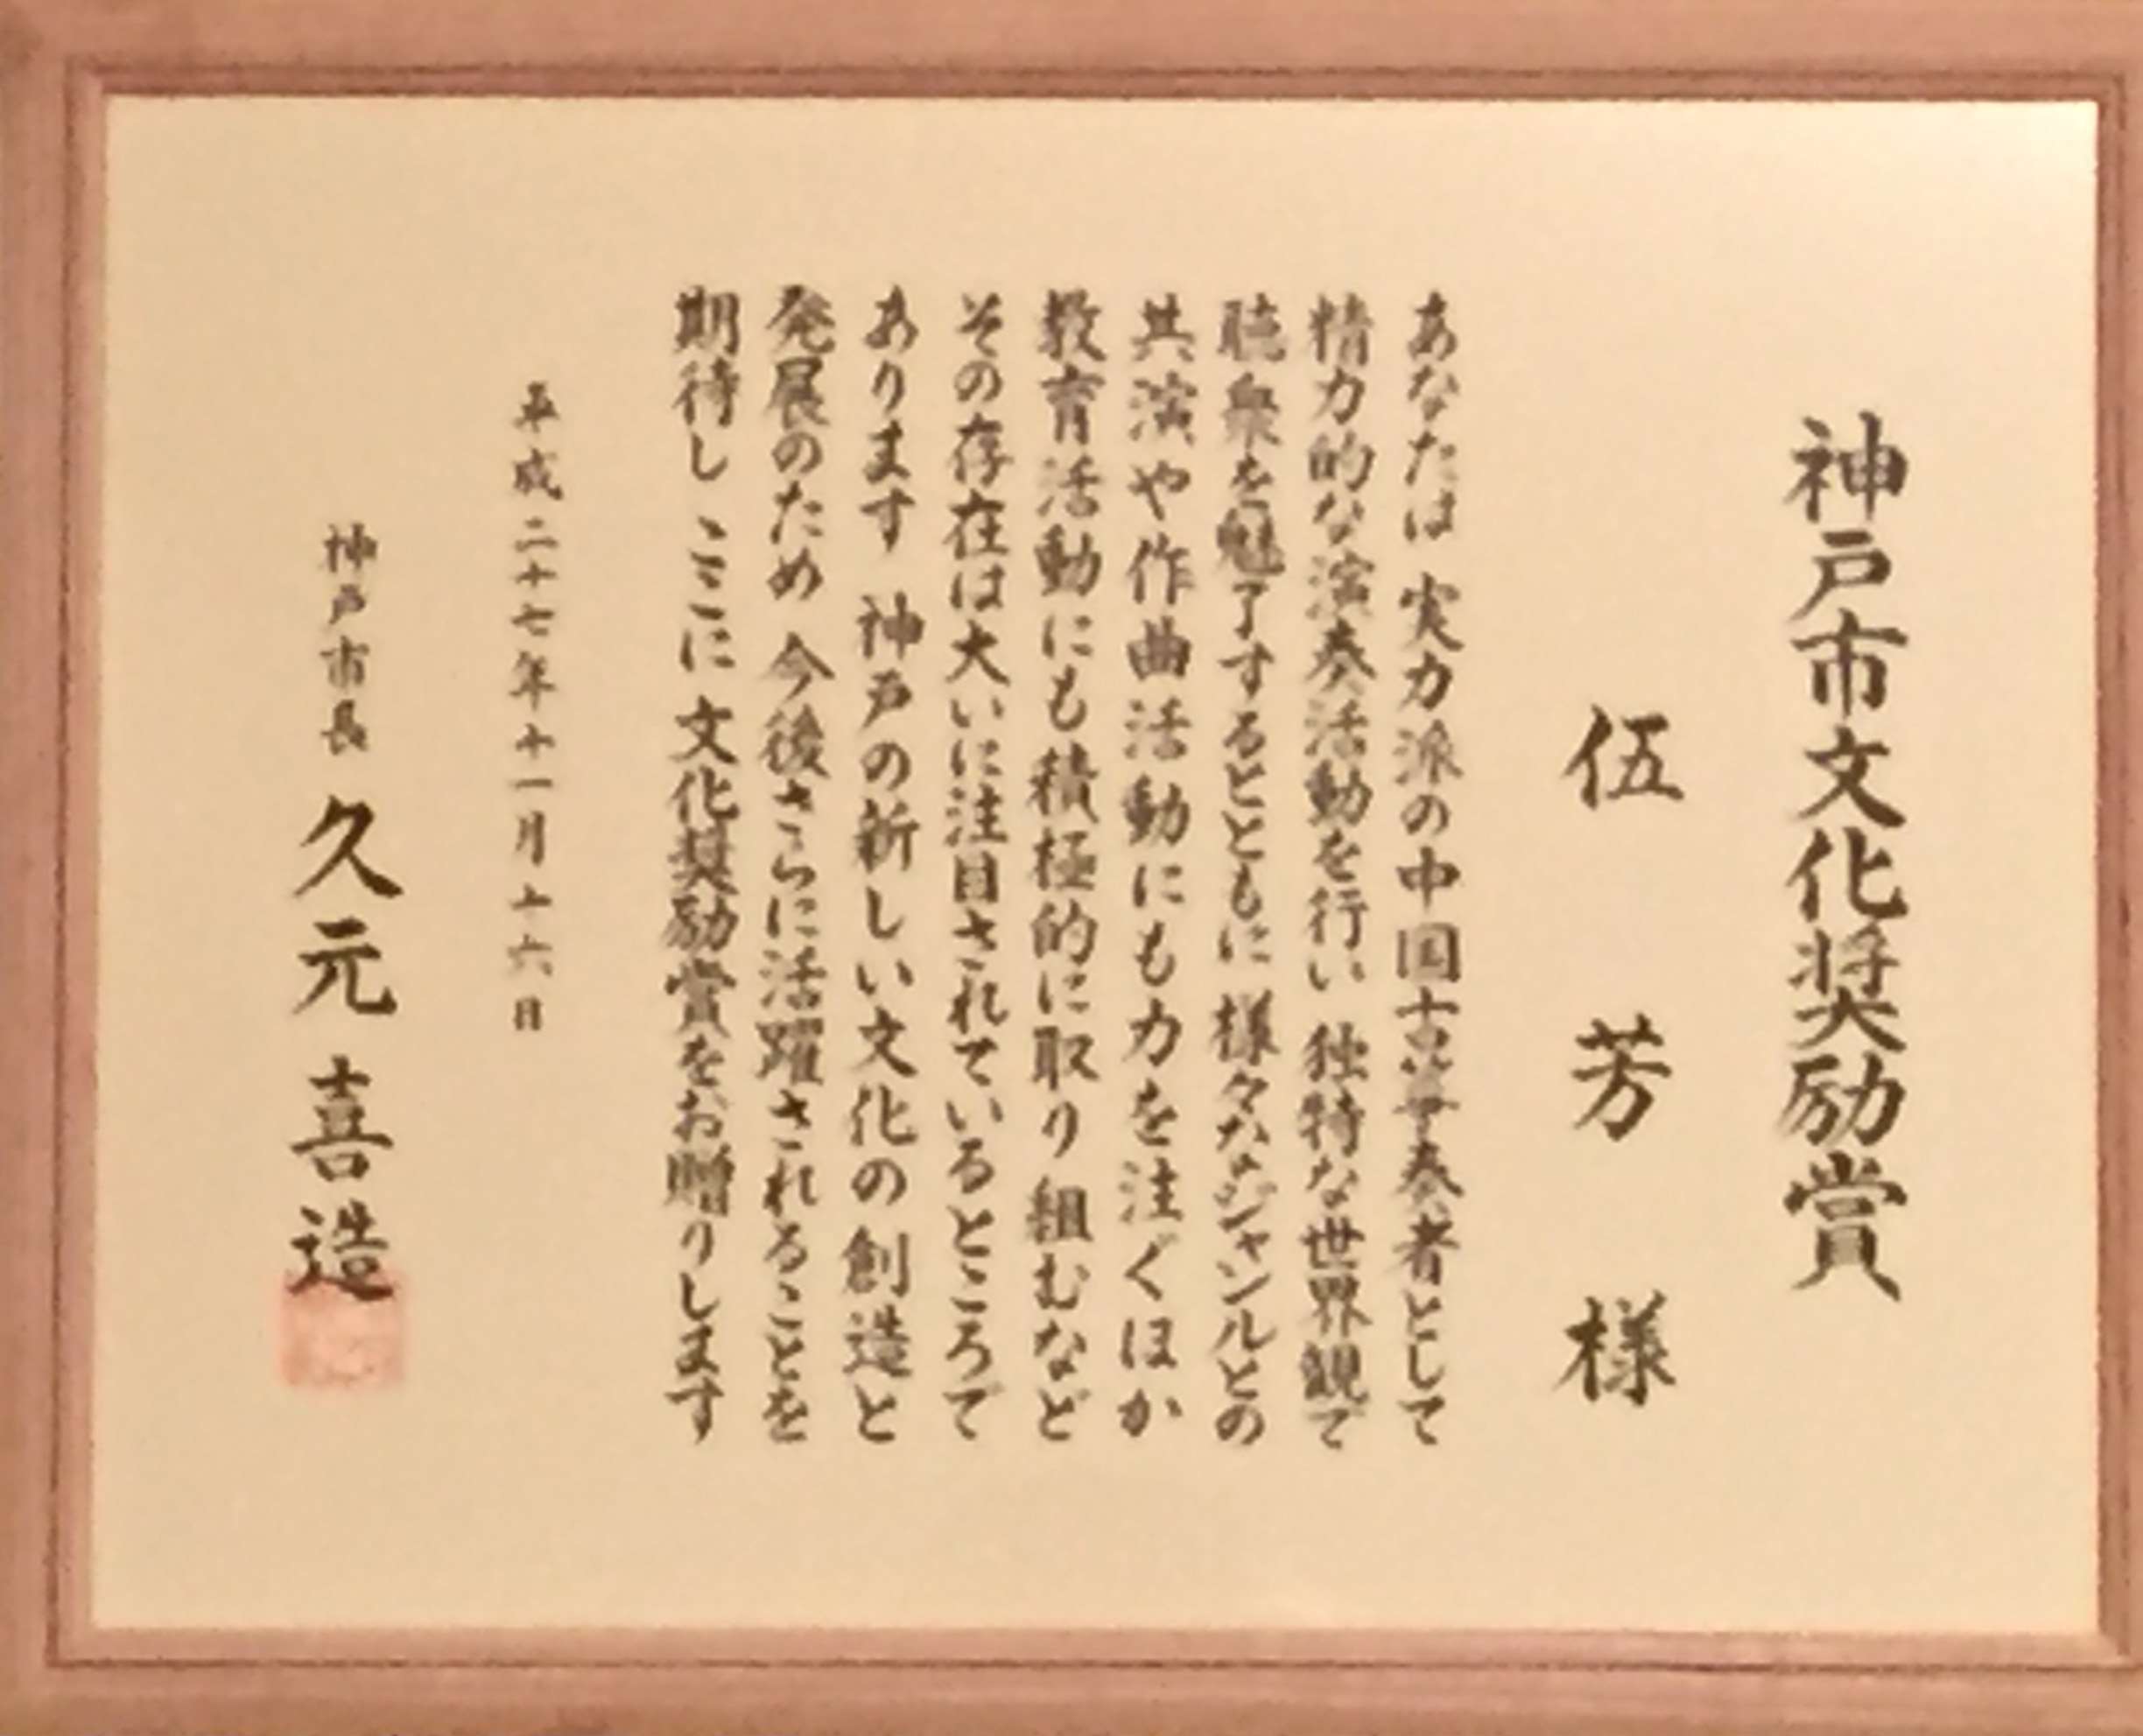 神戸市文化奨励賞
伍 芳 様
あなたは 実力派の中国古箏奏者として
精力的な演奏活動を行い 独特な世界観で
聴衆を魅了するとともに 様々なジャンルとの
共演や作曲活動にも力を注ぐほか
教育活動にも積極的に取り組むなど
その存在は大いに注目されているところで
あります 神戸の新しい文化の創造と
発展のため 今後さらに活躍されることを
期待し ここに 文化奨励賞をお贈りします
平成二十七年十一月十六日
神戸市長 久元喜造